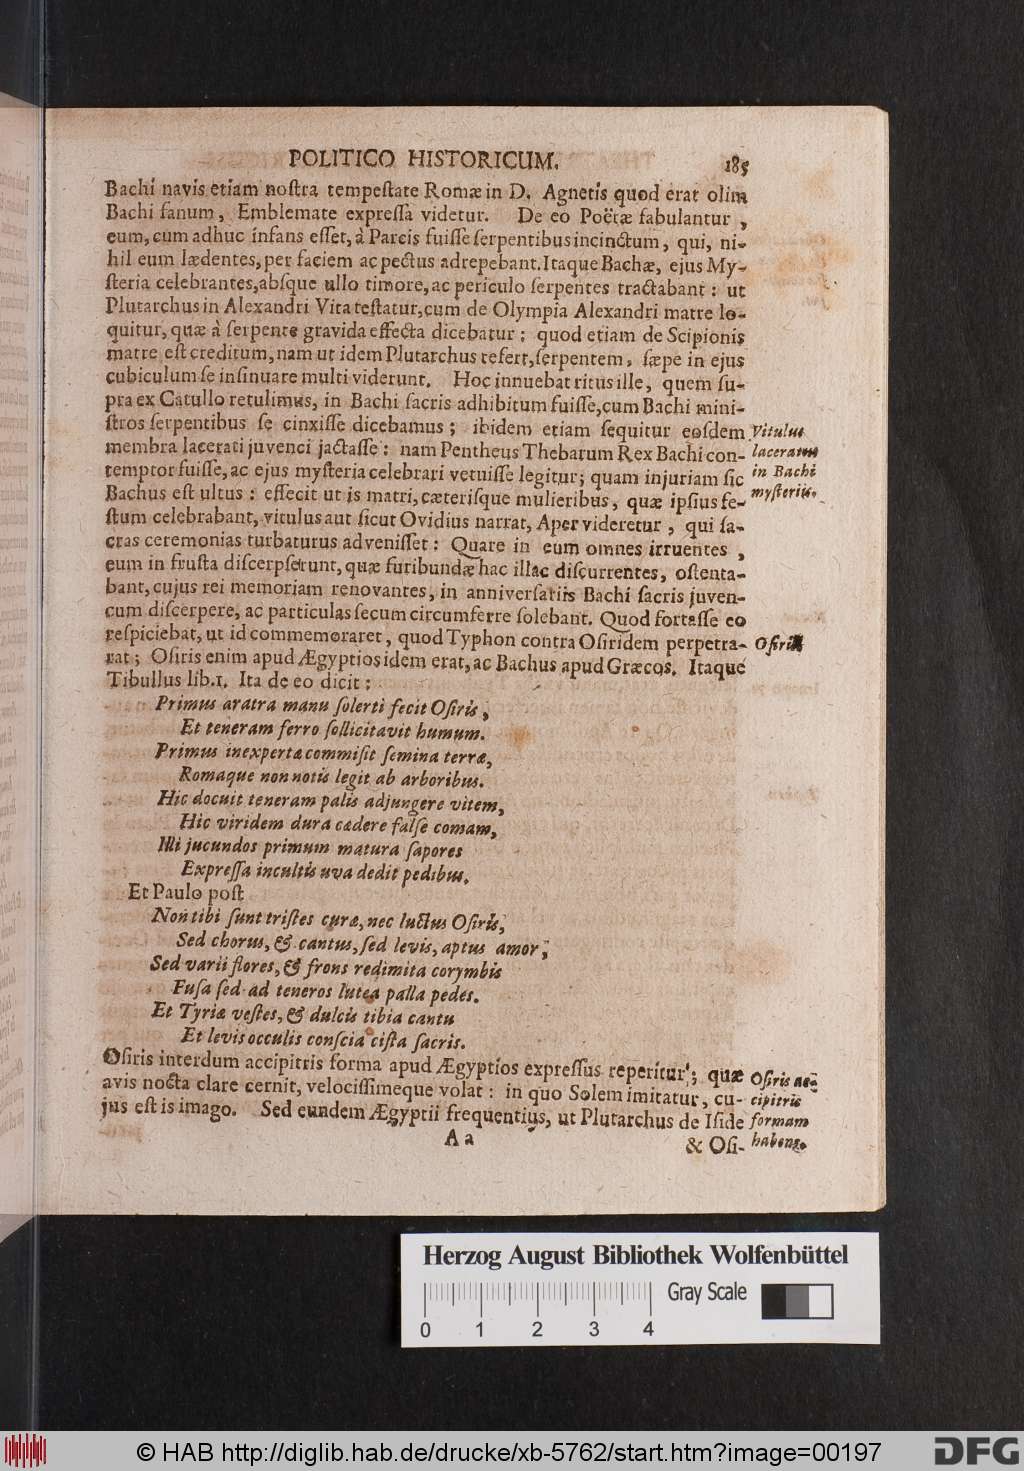 POLITICO HISTORICUM. 185
Bachi navis etiam noſtra tempeſtate Romæ in D. Agnetis quod erat olim
Bachi fanum, Emblemate expreſſa videtur. De eo Poëtæ fabulantur,
eum, cum adhuc infans eſſet, à Parcis fuiſſe ſerpentibus incinctum, qui, ni-
hil eum lædentes, per faciem ac pectus adrepebant. Itaque Bachæ, ejus My-
ſteria celebrantes, abſque ullo timore, ac periculo ſerpentes tractabant: ut
Plutarchus in Alexandri Vita teſtatur, cum de Olympia Alexandri matre lo-
quitur, quæ à ſerpente gravida effecta dicebatur; quod etiam de Scipionis
matre eſt creditum, nam ut idem Plutarchus refert, ſerpentem, ſæpe in ejus
cubiculum ſe inſinuare multi viderunt. Hoc innuebat ritus ille, quem ſu-
pra ex Catullo retulimus, in Bachi ſacris adhibitum fuiſſe, cum Bachi mini-
ſtros ſerpentibus ſe cinxiſſe dicebamus; ibidem etiam ſequitur eoſdem
membra lacerati juvenci jactaſſe: nam Pentheus Thebarum Rex Bachi con-
temptor fuiſſe, ac ejus myſteria celebrari vetuiſſe legitur; quam injuriam ſic
Bachus eſt ultus: effecit ut is matri, cæteriſque mulieribus, quæ ipſius fe-
ſtum celebrabant, vitulus aut ſicut Ovidius narrat, Aper videretur, qui ſa-
cras ceremonias turbaturus adveniſſet: Quare in eum omnes irruentes,
eum in fruſta diſcerpſerunt, quæ furibundæ hac illac diſcurrentes, oſtenta-
bant, cujus rei memoriam renovantes, in anniverſariis Bachi ſacris juven-
cum diſcerpere, ac particulas ſecum circumferre ſolebant. Quod fortaſſe eo
reſpiciebat, ut id commemoraret, quod Typhon contra Oſiridem perpetra-
rat; Oſiris enim apud Ægyptios idem erat, ac Bachus apud Græcos. Itaque
Tibullus lib.1. Ita de eo dicit:
Primus aratra manu ſolerti fecit Oſiris,
Et teneram ferro ſollicitavit humum.
Primus inexpertæ commiſit ſemina terræ,
Romaque non notis legit ab arboribus.
Hic docuit teneram palis adjungere vitem,
Hic viridem dura cædere falſe comam,
Illi jucundos primum matura ſapores
Expreſſa incultis uva dedit pedibus.
Et Paulo poſt
Non tibi ſunt triſtes curæ, nec luctus Oſiris,
Sed chorus, & cantus, ſed levis, aptus amor;
Sed varii flores, & frons redimita corymbis
Fuſa ſed ad teneros lutea palla pedes.
Et Tyriæ veſtes, & dulcis tibia cantu
Et levis occulis conſcia ciſta ſacris.
Oſiris interdum accipitris forma apud Ægyptios expreſſus reperitur; quæ
avis nocta clare cernit, velociſſimeque volat: in quo Solem imitatur, cu-
jus eſt is imago. Sed eundem Ægyptii frequentius, ut Plutarchus de Iſide
A a
& Oſi-
Vitulus
laceratus
in Bachi
myſteriis.
Oſiris
Oſiris ac-
cipitris
formam
habens.
Herzog August Bibliothek Wolfenbüttel
Gray Scale
0 1 2 3 4
© HAB http://diglib.hab.de/drucke/xb-5762/start.htm?image=00197
DFG